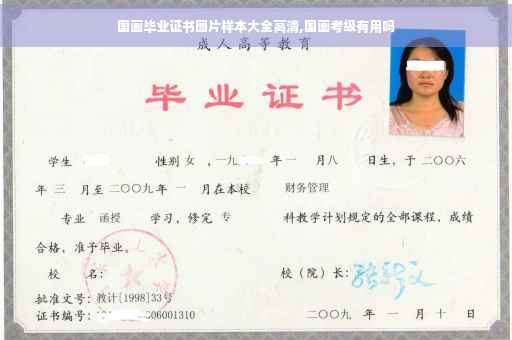 国画毕业证书图片样本大全高清,国画考级有用吗
成人高等教育
毕业证书
学生 性别 女 ,一九 年一 月八 日生，于二〇〇六
年 三 月至二〇〇九年 一 月在本校 财务管理
专业 函授 学习，修完 专 科教学计划规定的全部课程，成绩
合格，准予毕业。
校 名： 校（院）长：
批准文号：教计[1998]33号
证书编号： 06001310 二〇〇九 年 一 月 十 日